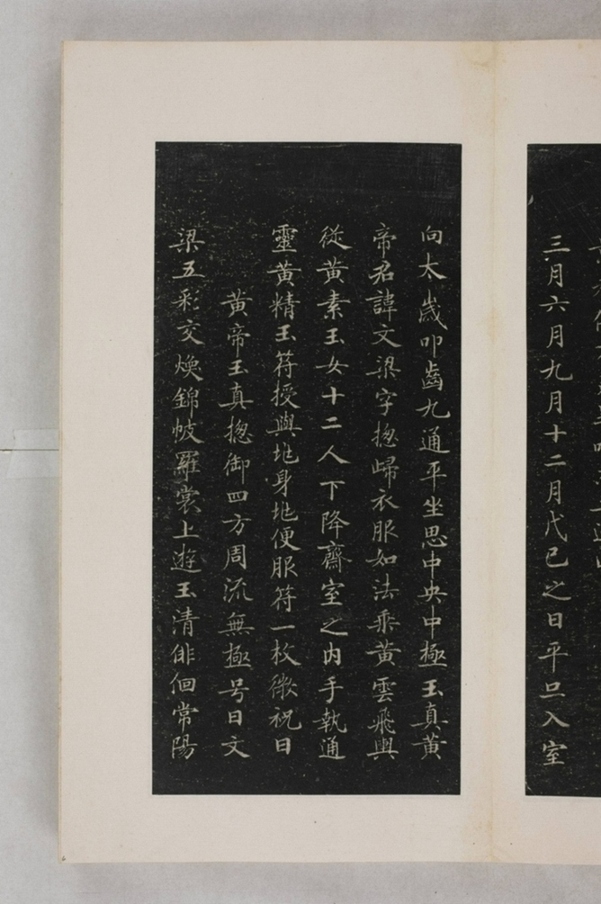 三月六月九月十二月戊己之日平旦入室
向太歲叩齒九通平坐思中央中極玉真黃
帝君諱文梁字揔歸衣服如法乘黃雲飛輿
從黃素玉女十二人下降齋室之內手執通
靈黃精玉符授與地身地便服符一枚微祝曰
黃帝玉真揔御四方周流無極号曰文
梁五彩交煥錦帔羅裳上遊玉清俳佪常陽